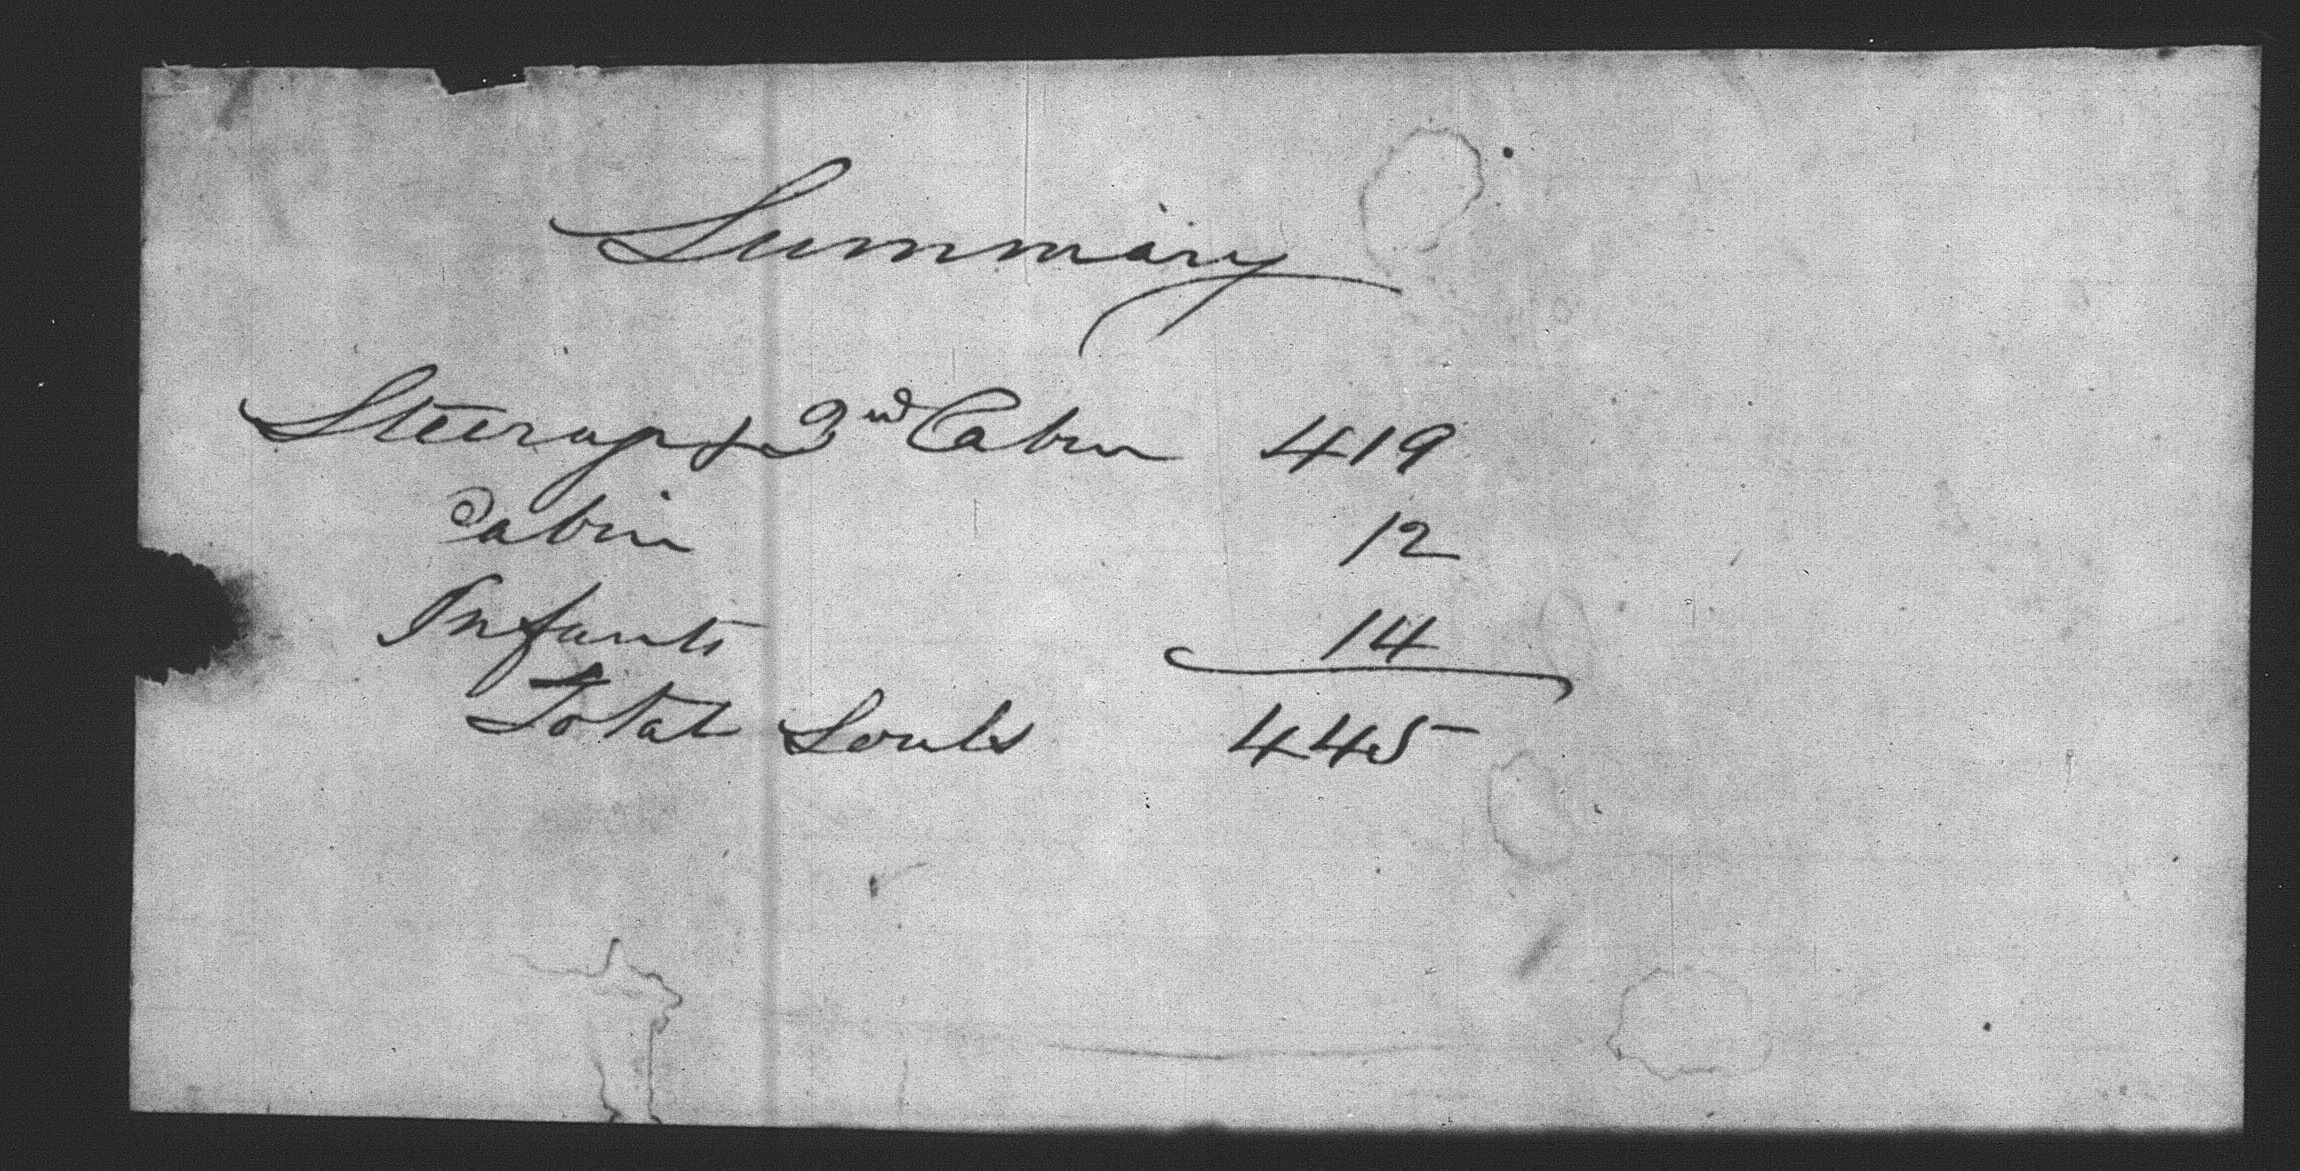 Summary
Steerage & 2nd Cabin 419
Cabin 12
Infants 14
Total Souls 445